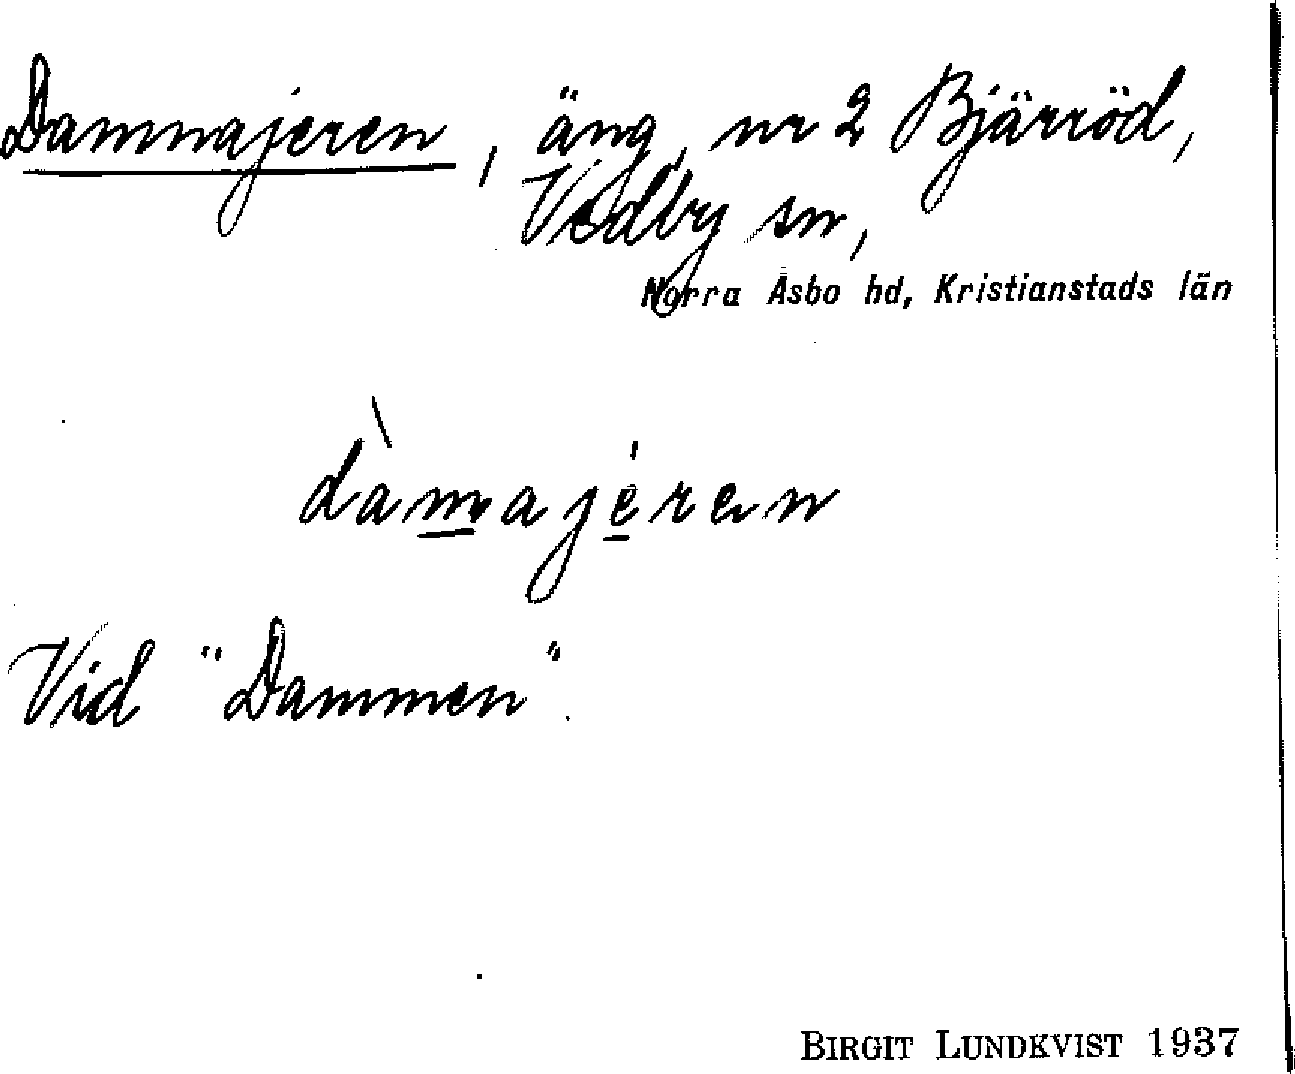 Dammajeren, äng, nr 2 Bjärröd,
Vedby sn,
Norra Åsbo hd, Kristianstads län
dàmajéren
Vid "Dammen".
BIRGIT LUNDKVIST 1937